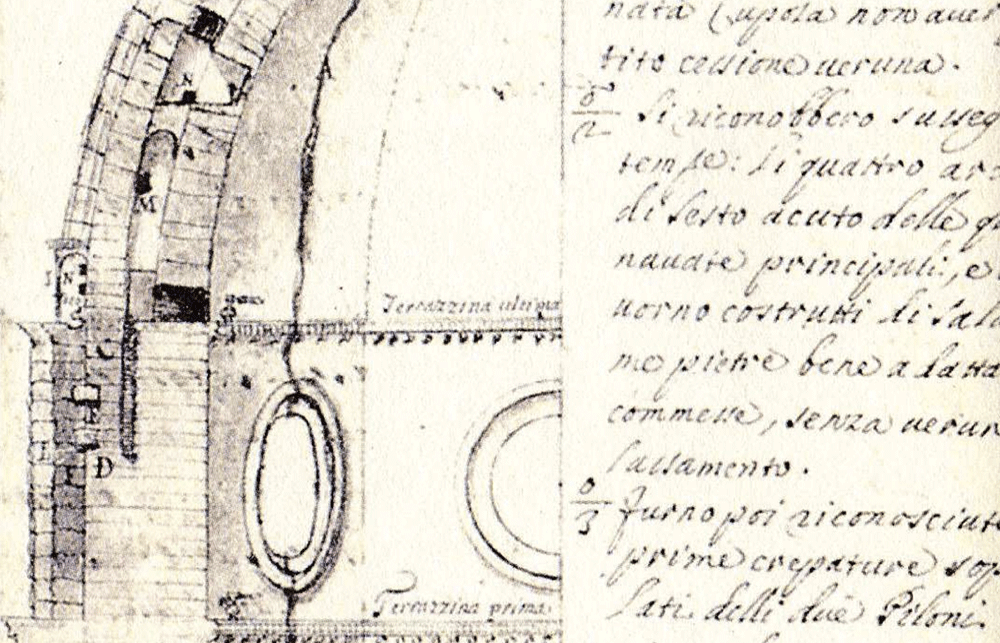 A
N
M
D
Terrazzina ultima
Terrazzina prima
nata Cupola non aver
tito cessione veruna.
2
Si riconobbero susseg
tempe: li quattro ar
di Sesto acuto delle q
navate principali, e
vorno costrutti di sal
me pietre bene adatta
commesse, senza verun
lassamento.
3
Furno poi riconosciut
prime crepature sop
Lati delli due Piloni